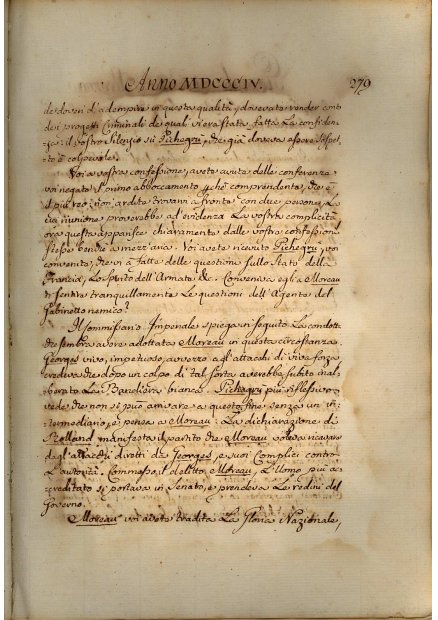 Anno MDCCCIV. 279
de doveri d'adempire in questa qualità, dovevate render conto
dei progetti Criminali de quali v'era stata fatta La confiden-
za: il vostro silenzio su Pichegrù, che già doveva essere sospet-
to è colpevole.
Voi a vostra confessione, avete avute delle conferenze
voi negate il primo abboccamento perchè comprendente, che è
il più reo: non ardite trovarvi a fronte con due persone, La
cui riunione proverebbe ad evidenza La vostra complicità
ora questa apparisce chiaramente dalle vostre confessioni
stesse benchè a mezz'aria. Voi avete ricevuto Pichegrù, voi
convenite, che vi à fatte delle questioni sullo stato della
Francia, Lo spirito dell'Armata &c. Conveniva egli a Moreau
di sentire tranquillamente Le questioni dell'Agente del
Gabinetto nemico?
Il Commissario Imperiale spiega in seguito La condotta
che sembra avere adottata Moreau in questa circostanza.
Georges vivo, impetuoso, avvezzo agl'attacchi di viva forza
credeva che dopo un colpo di tal sorta averebbe subito inal-
berato La Bandiera bianca. Pichegrù più riflessivo
vede che non si può arrivare a questo fine senza un in-
termediario, e pensa a Moreau: La dichiarazione di
Rolland manifesta il partito che Moreau voleva ricavare
dagl'attacchi diretti da Georges, e suoi Complici contro
L'autorità. Commesso il delitto Moreau, L'Uomo più ac-
creditato si portava in Senato, e prendeva Le redini del
Governo.
Moreau voi avete tradita La Gloria Nazionale,